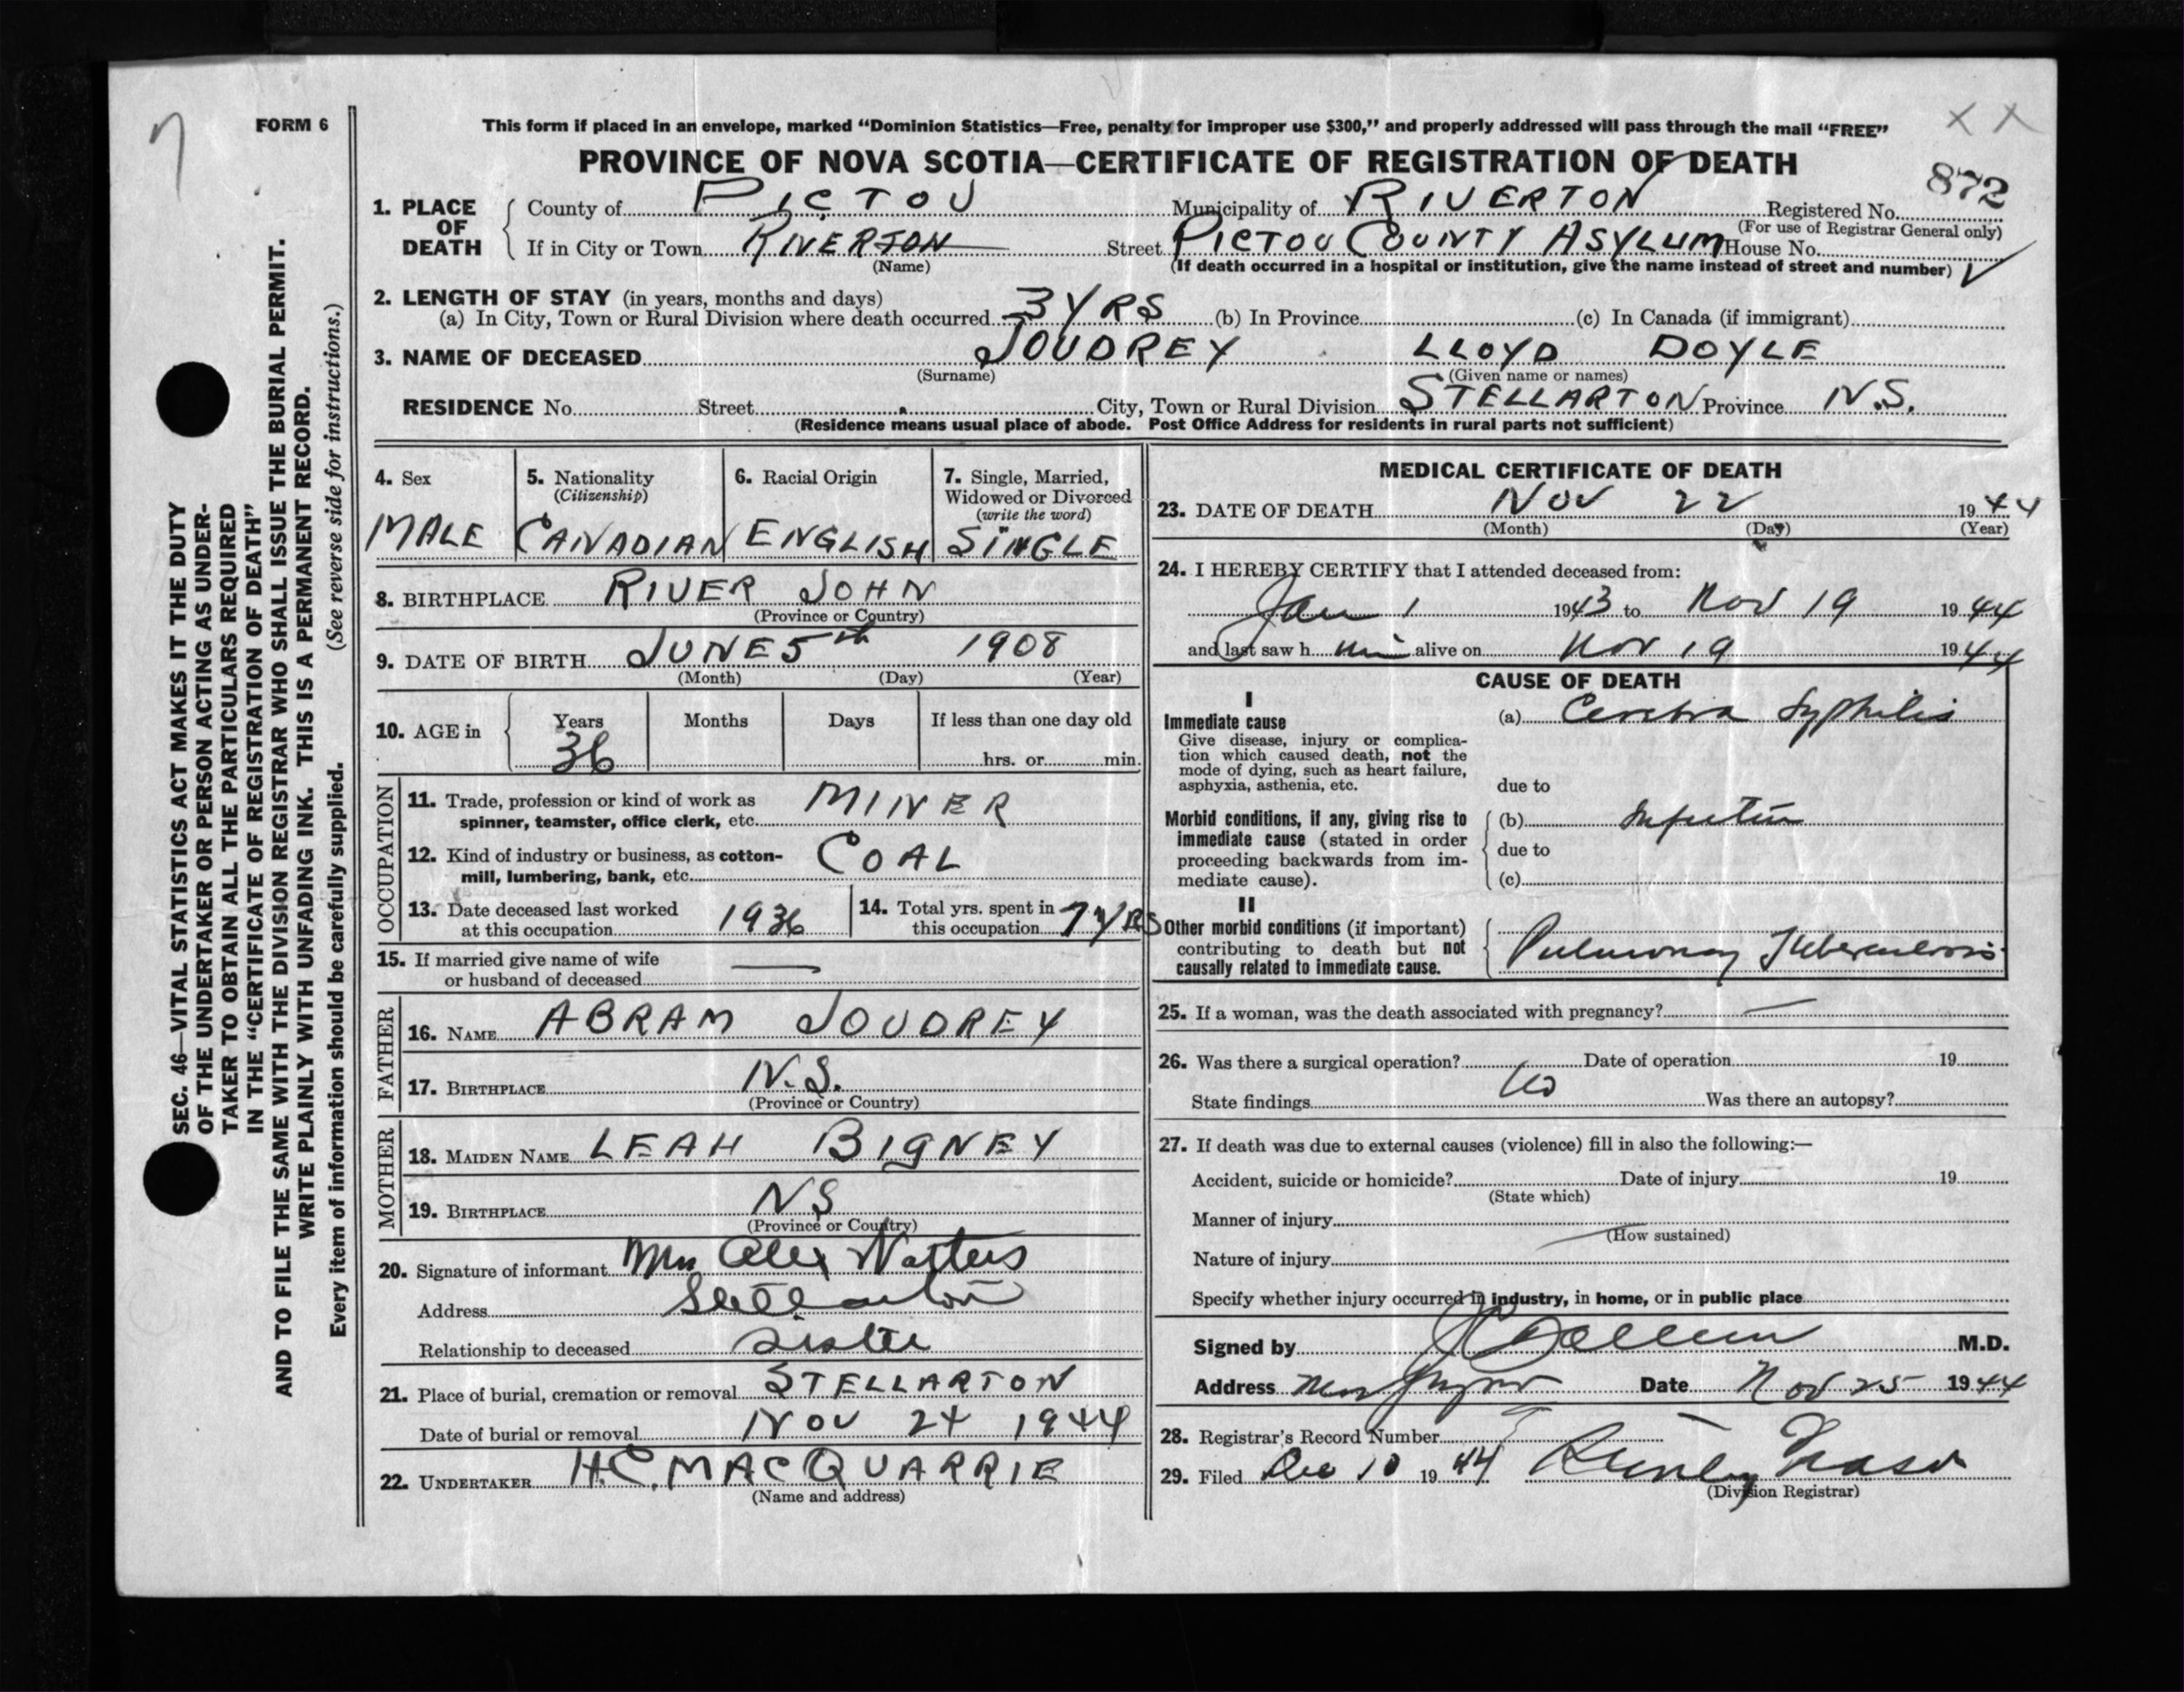 7
FORM 6
This form if placed in an envelope, marked “Dominion Statistics—Free, penalty for improper use $300,” and properly addressed will pass through the mail “FREE”
X X
PROVINCE OF NOVA SCOTIA—CERTIFICATE OF REGISTRATION OF DEATH
872
1. PLACE OF DEATH
County of PICTOU Municipality of RIVERTON Registered No.
(For use of Registrar General only)
If in City or Town RIVERTON Street PICTOU COUNTY ASYLUM House No.
(Name) (If death occurred in a hospital or institution, give the name instead of street and number)
2. LENGTH OF STAY (in years, months and days)
(a) In City, Town or Rural Division where death occurred 3 YRS (b) In Province (c) In Canada (if immigrant)
3. NAME OF DECEASED JOUDREY LLOYD DOYLE
(Surname) (Given name or names)
RESIDENCE No. Street City, Town or Rural Division STELLARTON Province N.S.
(Residence means usual place of abode. Post Office Address for residents in rural parts not sufficient)
4. Sex
MALE
5. Nationality
(Citizenship)
CANADIAN
6. Racial Origin
ENGLISH
7. Single, Married,
Widowed or Divorced
(write the word)
SINGLE
8. BIRTHPLACE RIVER JOHN
(Province or Country)
9. DATE OF BIRTH JUNE 5th 1908
(Month) (Day) (Year)
10. AGE in
Years Months Days If less than one day old
36 hrs. or min.
OCCUPATION
11. Trade, profession or kind of work as MINER
spinner, teamster, office clerk, etc.
12. Kind of industry or business, as cotton- COAL
mill, lumbering, bank, etc.
13. Date deceased last worked
at this occupation 1936
14. Total yrs. spent in
this occupation 7 YRS
15. If married give name of wife
or husband of deceased —
FATHER
16. NAME ABRAM JOUDREY
17. BIRTHPLACE N.S.
(Province or Country)
MOTHER
18. MAIDEN NAME LEAH BIGNEY
19. BIRTHPLACE NS
(Province or Country)
20. Signature of informant Mrs Alex Watters
Address Stellarton
Relationship to deceased Sister
21. Place of burial, cremation or removal STELLARTON
Date of burial or removal NOV 24 1944
22. UNDERTAKER H.C. MACQUARRIE
(Name and address)
MEDICAL CERTIFICATE OF DEATH
23. DATE OF DEATH NOV 22 1944
(Month) (Day) (Year)
24. I HEREBY CERTIFY that I attended deceased from:
Jan 1 1943 to Nov 19 1944
and last saw h im alive on Nov 19 1944
CAUSE OF DEATH
I
Immediate cause
Give disease, injury or complica-
tion which caused death, not the
mode of dying, such as heart failure,
asphyxia, asthenia, etc.
(a) Cerebra Syphilis
due to
Morbid conditions, if any, giving rise to
immediate cause (stated in order
proceeding backwards from im-
mediate cause).
(b) Infection
due to
(c)
II
Other morbid conditions (if important)
contributing to death but not
causally related to immediate cause.
Pulmonary Tuberculosis
25. If a woman, was the death associated with pregnancy? —
26. Was there a surgical operation? Date of operation 19
No
State findings Was there an autopsy?
27. If death was due to external causes (violence) fill in also the following:—
Accident, suicide or homicide? Date of injury 19
(State which)
Manner of injury
(How sustained)
Nature of injury
Specify whether injury occurred in industry, in home, or in public place
Signed by M.D.
Address Date Nov 25 1944
28. Registrar's Record Number
29. Filed Dec 10 1944 Fraser
(Division Registrar)
SEC. 46—VITAL STATISTICS ACT MAKES IT THE DUTY
OF THE UNDERTAKER OR PERSON ACTING AS UNDER-
TAKER TO OBTAIN ALL THE PARTICULARS REQUIRED
IN THE “CERTIFICATE OF REGISTRATION OF DEATH”
AND TO FILE THE SAME WITH THE DIVISION REGISTRAR WHO SHALL ISSUE THE BURIAL PERMIT.
WRITE PLAINLY WITH UNFADING INK. THIS IS A PERMANENT RECORD.
Every item of information should be carefully supplied. (See reverse side for instructions.)